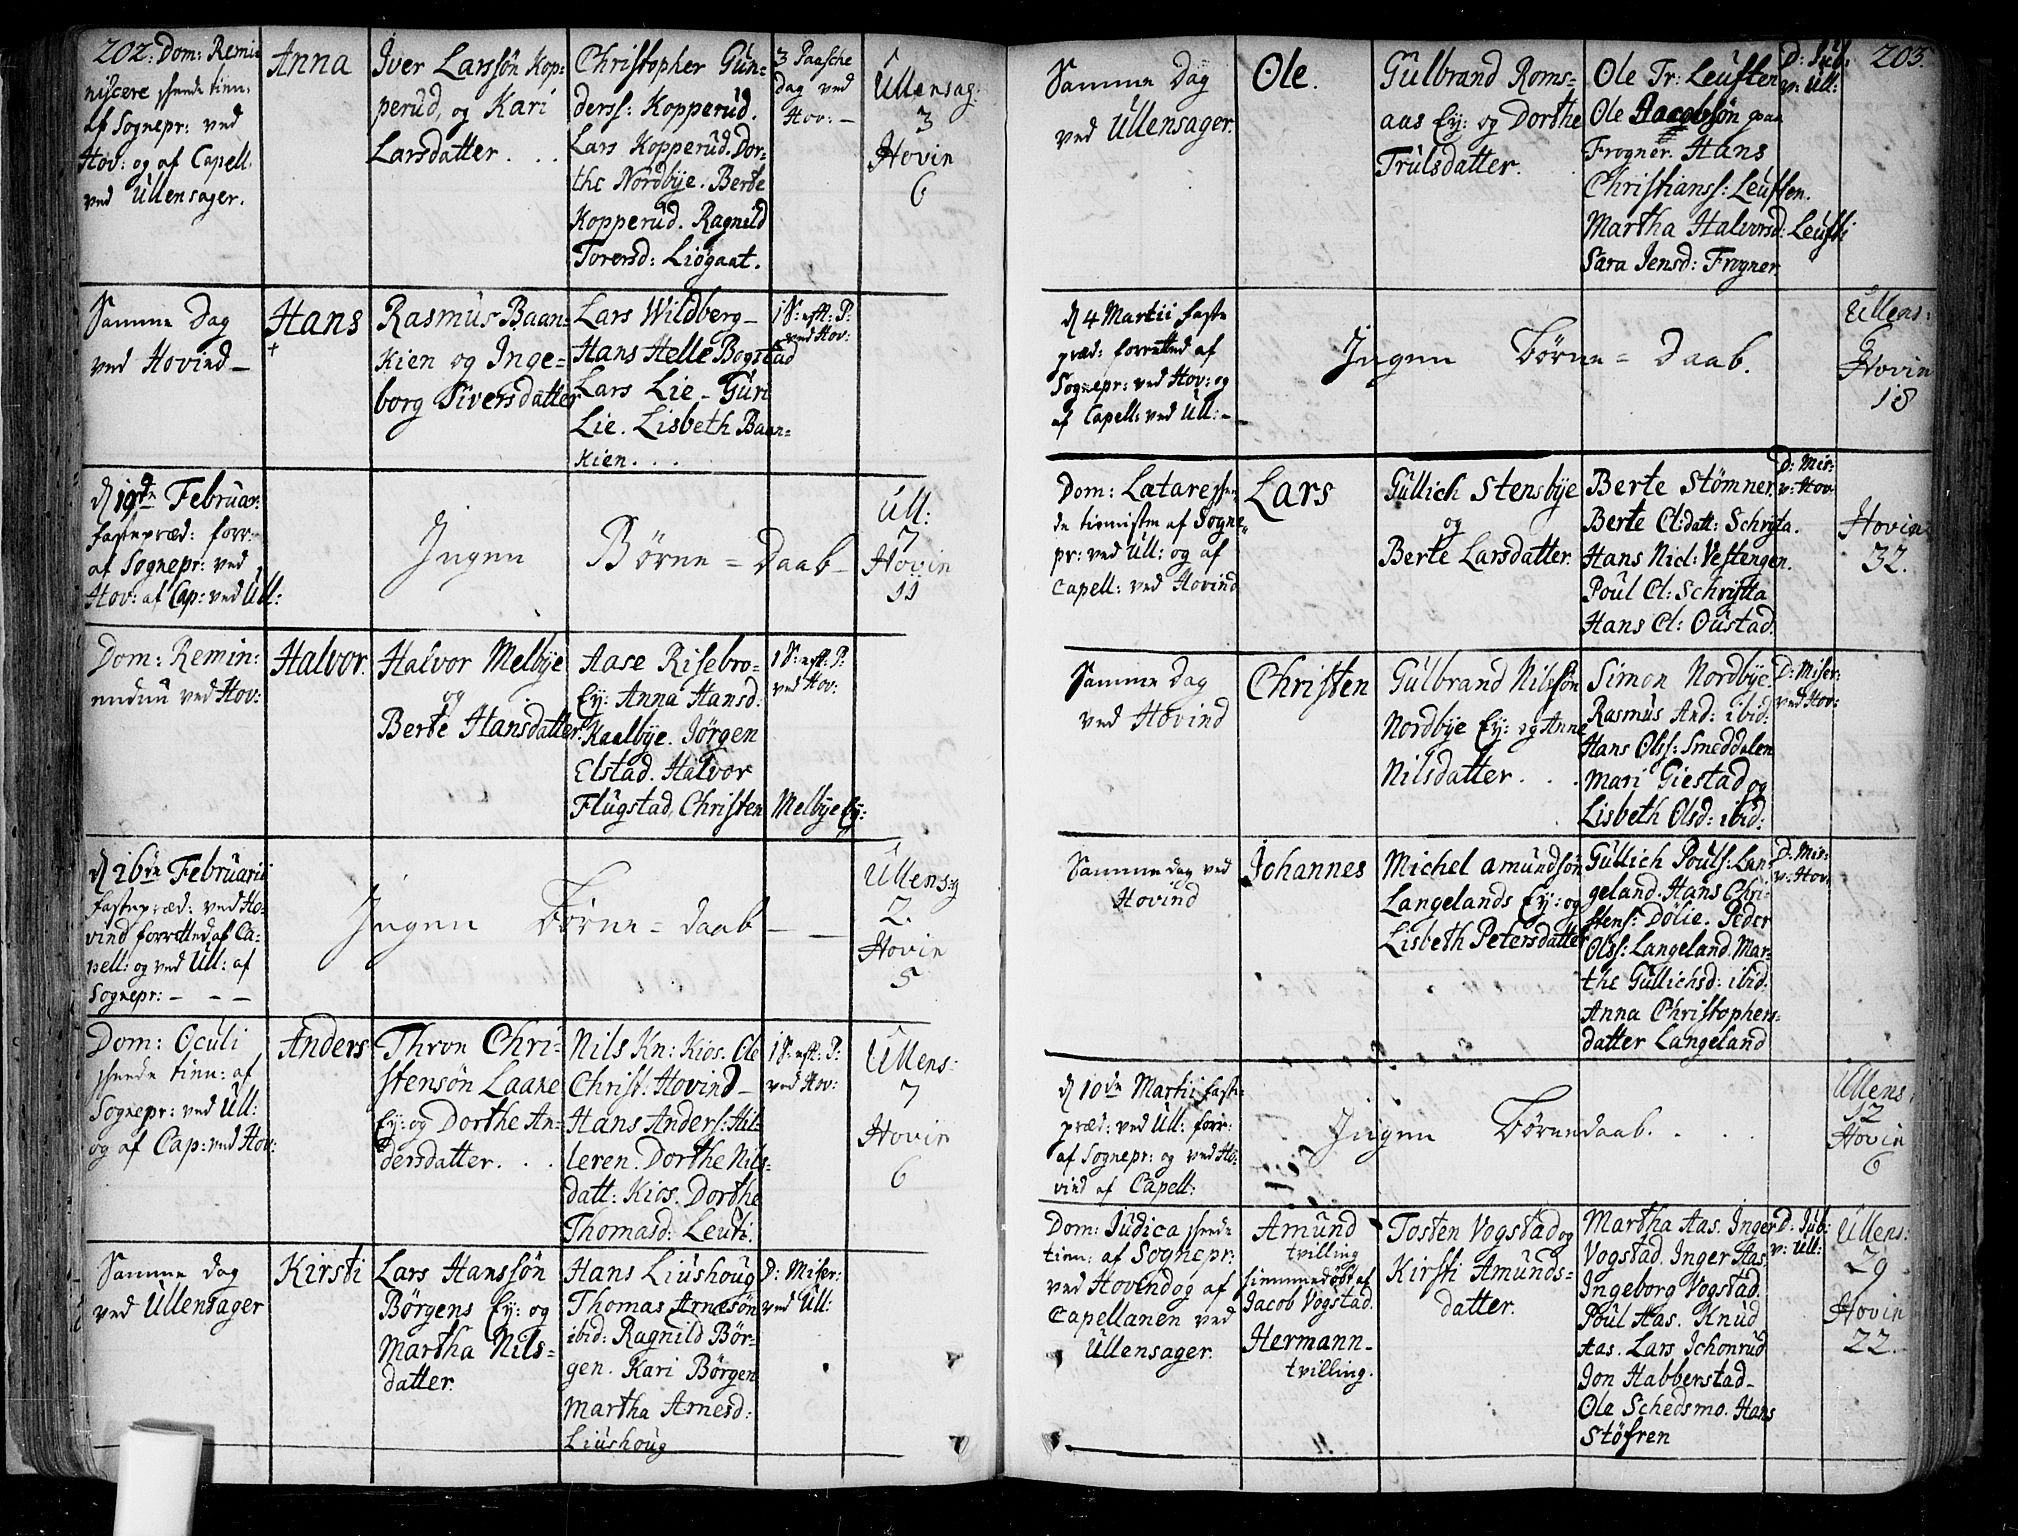 202.
Dom: Remi-
niscere
af Sognepr: ved
Hov: og af Capell.
ved Ullensager.
Anna
Iver Larssøn Kop-
perud, og Kari
Larsdatter . . .
Christopher Gun-
derss: Kopperud.
Lars Kopperud. Dor-
the Nordbye. Berte
Kopperud. Ragnild
Torersd: Liøgaat.
3 Paasche
dag ved
Hov: -
Ullensag:
3
Hovin
6
Samme dag
ved Hovind -
Hans
+
Rasmus Baan-
kien og Inge-
borg Siversdatter
Lars Wildberg -
Hans Helle Bogstad
Lars Lie - Guri
Lie. Lisbeth Baan-
kien . . .
1 S: eft: P:
ved Hov:
d 19de Februar:
fastepræd: forr:
af Sognepr: ved
Hov: af Cap: ved Ull:
Ingen Børne = daab -
Ull:
7
Hovin
11
Dom: Remin:
ved Hov:
Halvor.
Halvor Melbye
og
Berte Hansdatter.
Aase Risebro-
Ey: Anna Hansd:
Kaalbye. Jørgen
Elstad. Halvor
Flugstad, Christen Melbye Ey:
1 S: eft: P:
ved Hov:
d 26de Februarii
fastepræd: ved Ho-
vind forretted af Ca-
pell: og ved Ull: af
Sognepr: - - -
Ingen Børne = daab - -
Ullens:
2.
Hovin
5
Dom: Oculi
tien: af
Sognepr: ved Ull:
og af Cap: ved Hov:
Anders
Thron Chri-
stensøn Laane
Ey: og Dorthe An-
dersdatter. . .
Nils Kn: Kios. Ole
Christ: Hovind -
Hans Anders: Hil-
leren. Dorthe Nils-
datt: Kios. Dorthe
Thomasd: Leuti.
1 S: eft: P:
ved Hov:
Ullens:
7
Hovin
6
Samme dag
ved Ullensager
Kirsti
Lars Hanssøn
Børgens Ey: og
Martha Nils-
datter.
Hans Liushoug
Thomas Arnesøn
ibid: Ragnild Bør-
gen. Kari Børgen
Martha Arnesd:
Liushoug
D: Miser:
ved Ull:
203.
Samme dag
ved Ullensager.
Ole.
Gulbrand Roms-
aas Ey: og Dorthe
Trulsdatter.
Ole Tr: Leusten
Ole Jacobsøn paa
Frogner. Hans
Christianss: Leusten.
Martha Halvorsd: Leusti
Sara Jensd: Frogner
D: Jub:
v: Ull:
d 4 Martii faste
præd: forretted af
Sognepr: ved Hov: og
af Capell: ved Ull: -
Ingen Børne = daab.
Ullens:
6
Hovin
18
Dom: Latare
af Sogne-
pr: ved Ull: og af
Capell: ved Hovind
Lars
Gullich Stensbye
og
Berte Larsdatter.
Berte Stømner.
Berte Cl: datt: Schrifta.
Hans Nicl: Vestengen.
Poul Cl: Schriftta
Hans Cl: Oustad.
D: Mis:
v: Hov
Hovin
32.
Samme dag
ved Hovind
Christen
Gulbrand Nilssøn
Nordbye Ey: og Anne
Nilsdatter. . .
Simon Nordbye
Rasmus And: ibid:
Hans Olss: Smeddalen
Mari Giestad og
Lisbeth Olsd: ibid:
D: Miser:
ved Hov:
Samme dag ved
Hovind
Johannes
Michel Amundsøn
Langelands Ey: og
Lisbeth Petersdatter
Gullich Pouls: Lan-
geland. Hans Chri-
stens: Dølie. Peder
Olss: Langeland. Mar-
the Gullichsd: ibid.
Anna Christophers-
datter Langeland
D: Mis:
v: Hov:
d 10de Martii faste-
præd: ved Ull: forr:
af Sognepr: og ved Ho-
vind af Capell:
Ingen Børnedaab. . .
Ullens:
12
Hovin
6
Dom: Judica
tien: af Sognepr:
ved Hovend og af
Capellanen ved
Ullensager.
Amund
tvilling
hiemmedøbt af
Jacob Vogstad.
Hermann -
tvilling.
Tosten Vogstad og
Kirsti Amunds-
datter.
Martha Aas. Inger
Vogstad. Inger Aas.
Ingeborg Vogstad.
Poul Aas. Knud
Aas. Lars Schonrud
Jon Habberstad -
Ole Schedsmo. Hans
Støfren
D: Jub:
v: Ull:
Ullens:
29
Hovin
22.